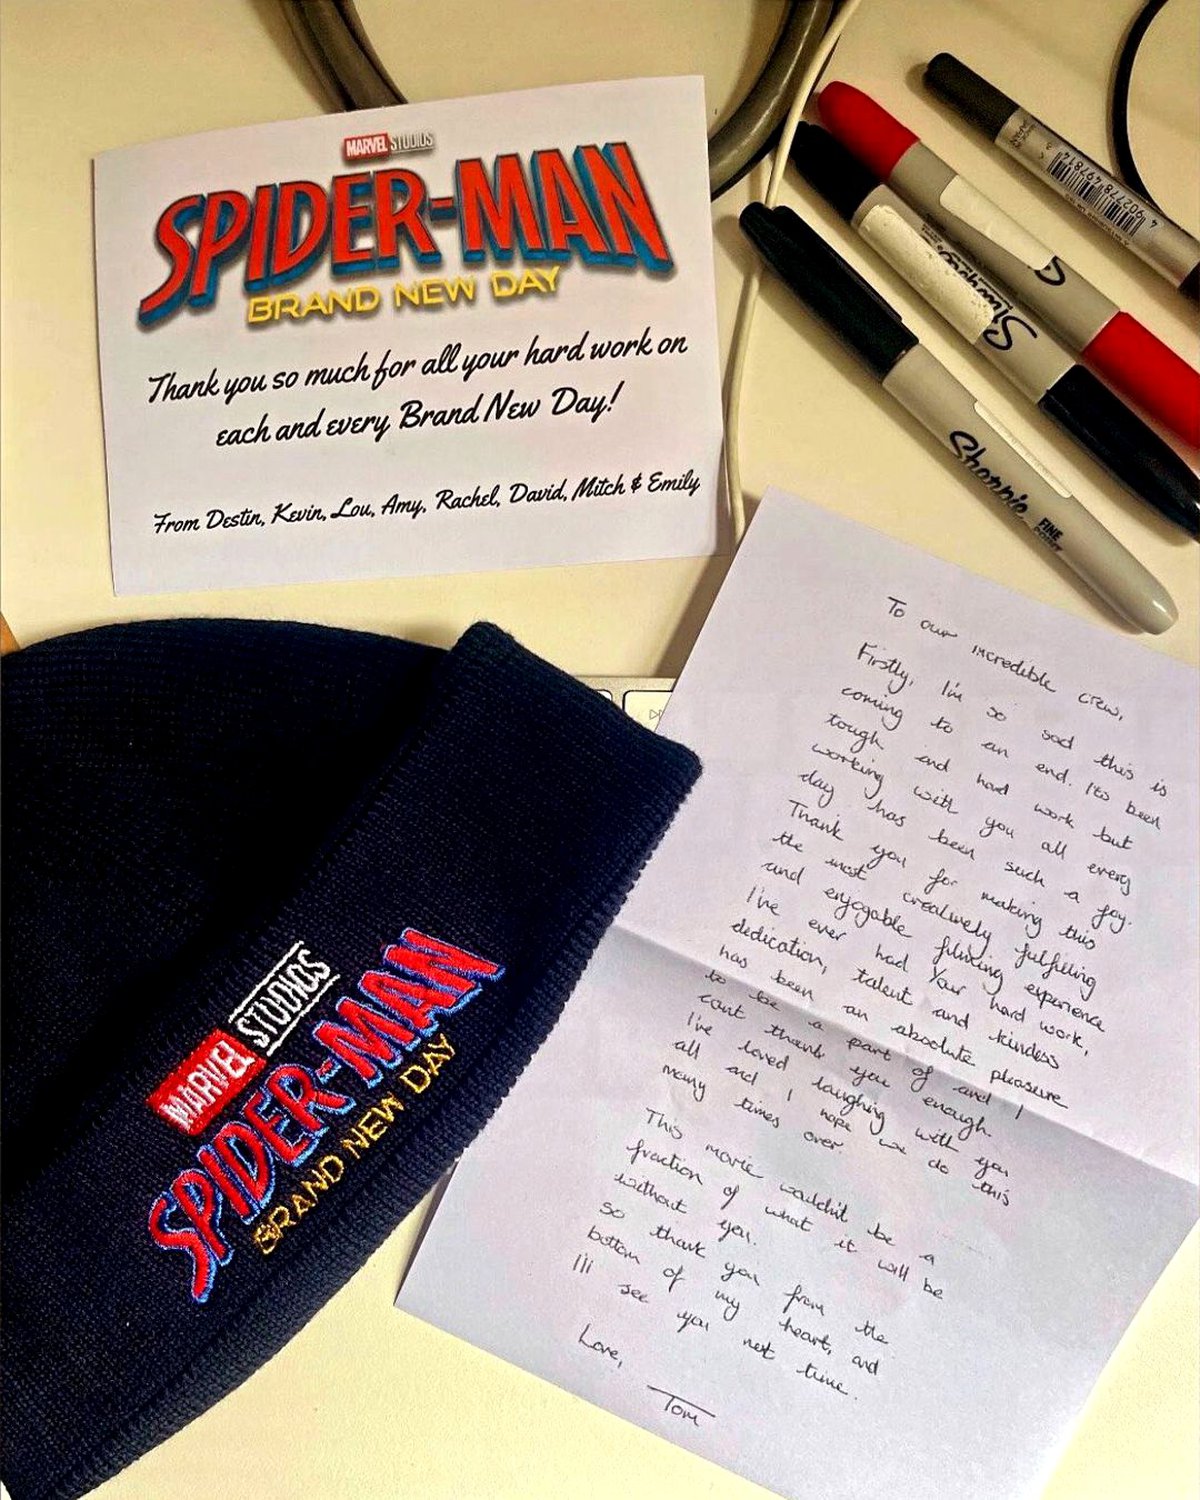 MARVEL STUDIOS
SPIDER-MAN
BRAND NEW DAY
Thank you so much for all your hard work on
each and every Brand New Day!
From Destin, Kevin, Lou, Amy, Rachel, David, Mitch & Emily
4 902778 497814
Sharpie
Sharpie
FINE
POINT
To our incredible crew,
Firstly, I'm so sad this is
coming to an end. Its been
tough and hard work but
working with you all every
day has been such a joy.
Thank you for making this
the most creatively fulfilling
and enjoyable filming experience
I've ever had Your hard work,
dedication, talent and kindess
has been an absolute pleasure
to be a part of and I
cant thank you enough.
I've loved laughing with you
all and I hope we do this
many times over.
This movie wouldn't be a
fraction of what it will be
without you.
So thank you from the
bottom of my heart, and
Ill see you next time.
Love,
Tom
MARVEL STUDIOS
SPIDER-MAN
BRAND NEW DAY